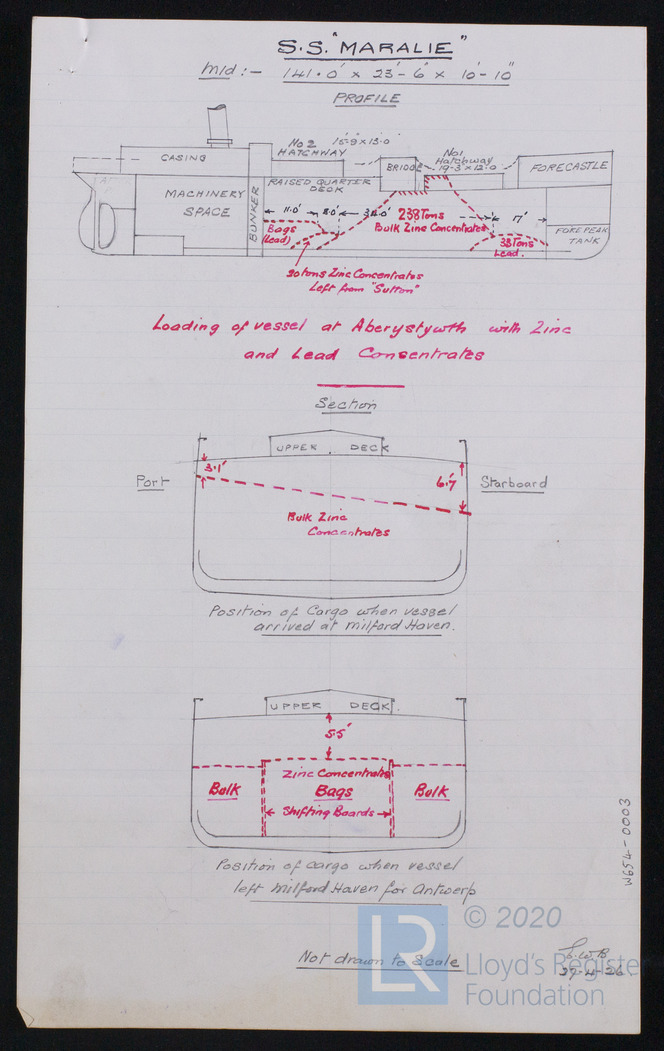 S.S. "MARALIE"
Mld:- 141.0' x 23'-6 x 10'-10"
PROFILE
No 2 15-9 x 13.0
HATCHWAY
No 1
Hatchway
19-3 x 12.0
CASING
BRIDGE
FORECASTLE
RAISED QUARTER
DECK
MACHINERY
SPACE
BUNKER
11.0'
8.0'
17'
238 Tons
Bulk Zinc Concentrates
Bags
(Lead)
38 Tons
Lead.
FORE PEAK
TANK
20 tons Zinc Concentrates
Left from "Sutton"
Loading of vessel at Aberystywth with Zinc
and Lead Concentrates
Section
UPPER DECK
3.1'
6.7'
Port
Starboard
Bulk Zinc
Concentrates
Position of Cargo when vessel
arrived at Milford Haven.
UPPER DECK.
5.5'
Zinc Concentrates
Bulk
Bags
Bulk
Shifting Boards
Position of cargo when vessel
left Milford Haven for Antwerp
Not drawn to Scale
29-4-26.
W654-0003
LR
© 2020
Lloyd's Register
Foundation